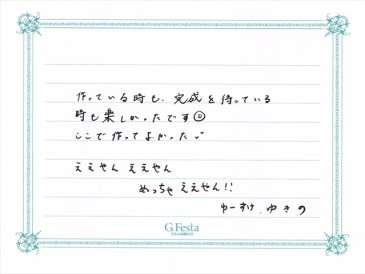 作っている時も、完成を待っている
時も楽しかったです☺
ここで作ってよかった
ええせん ええせん
めっちゃ ええせん!!
ゆーすけ、ゆきの
G.Festa
DIAMOND